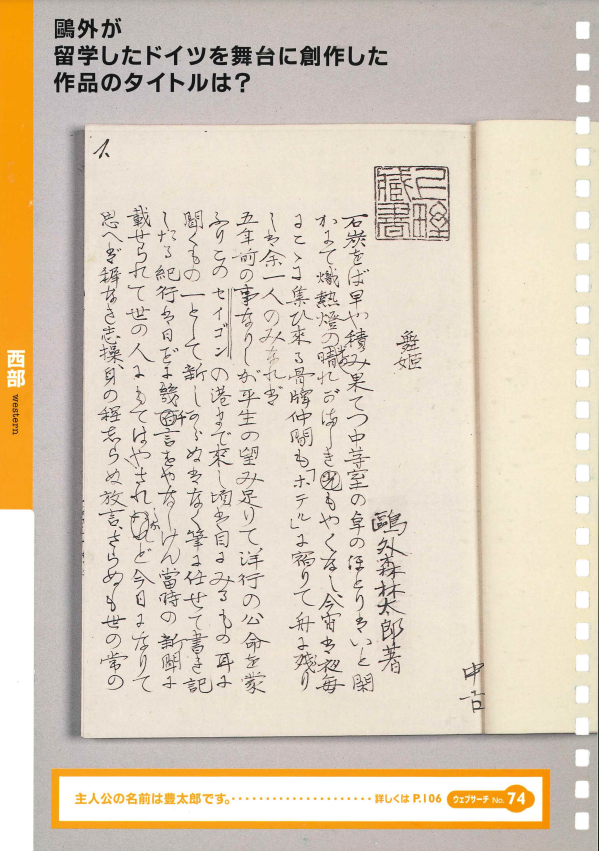 鷗外が
留学したドイツを舞台に創作した
作品のタイトルは？
西部
western
1.
藏書
舞姫
鷗外森林太郎著
中古
石炭をば早や積み果てつ中等室の卓のほとりはいと閑
かにて熾熱燈の晴れがましき光もやくなし、今宵は夜毎
にこゝに集ひ來る骨牌仲間も「ホテル」に宿りて舟に殘り
しは余一人のみなれば
五年前の事なりしが平生の望み足りて洋行の公命を蒙
ふりこのセイゴンの港まで來し頃は目にみるもの耳に
聞くもの一として新しからぬはなく筆に任せて書き記
したる紀行は日ごとに幾千言をやなしけん當時の新聞に
載せられて世の人にもてはやされしかど今日になりて
思へば穉なき志操、身の程志らぬ放言、さらぬも世の常の
主人公の名前は豊太郎です。･････････････････････詳しくは P.106 ウェブサーチ No. 74